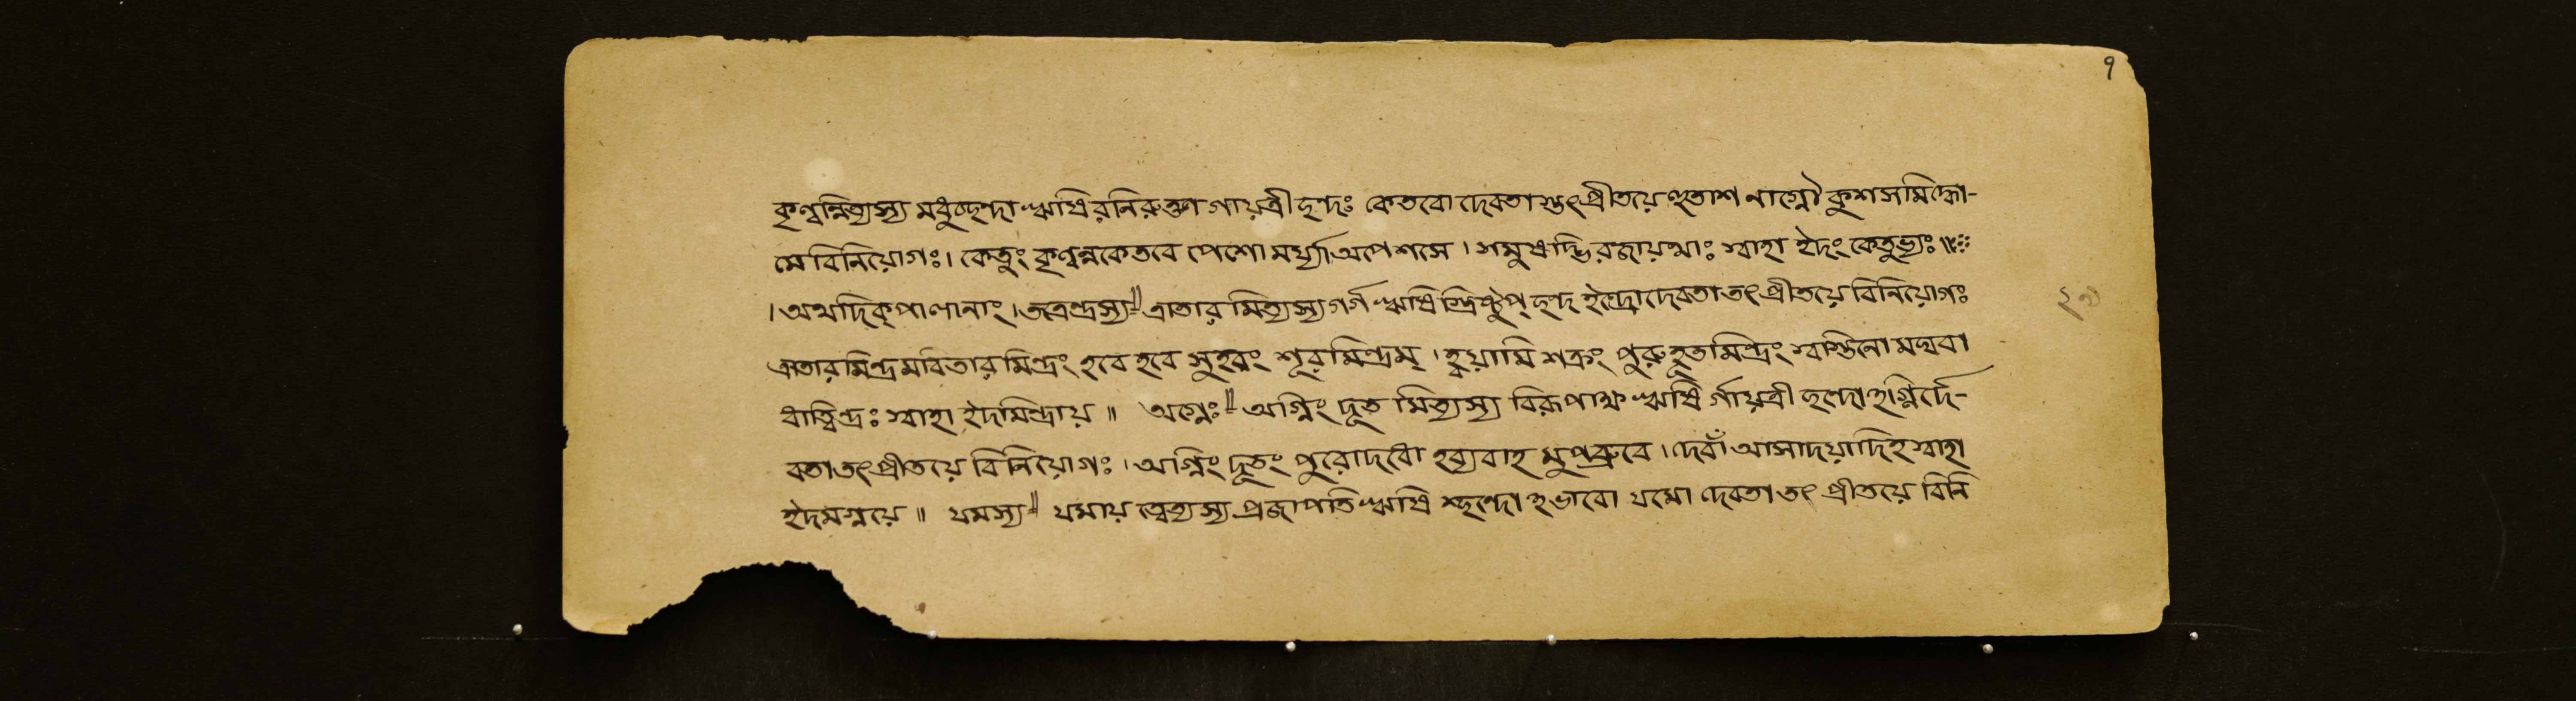 ৭
কৃণ্বন্নিত্যস্য মধুচ্ছন্দা ঋষিরনিরুক্তা গায়ত্রী ছন্দঃ কেতবো দেবতাস্তৎপ্রীতয়ে হুতাশনাগ্নৌ কুশসমিদ্ধো-
মে বিনিয়োগঃ। কেতুং কৃণ্বন্নকেতবে পেশো মর্য্যা অপেশসে। সমুষদ্ভিরজায়থাঃ স্বাহা ইদং কেতুভ্যঃ॥
। অথ দিক্‌পালানাং। তত্রেন্দ্রস্য॥ ত্রাতারমিত্যস্য গর্গ ঋষিস্ত্রিষ্টুপ্‌ ছন্দ ইন্দ্রো দেবতা তৎপ্রীতয়ে বিনিয়োগঃ
ত্রাতারমিন্দ্রমবিতারমিন্দ্রং হবে হবে সুহবং শূরমিন্দ্রম্‌। হ্বয়ামি শক্রং পুরুহূতমিন্দ্রং স্বস্তিনো মঘবা
ধাত্বিন্দ্রঃ স্বাহা ইদমিন্দ্রায়॥ অগ্নেঃ॥ অগ্নিং দূতমিত্যস্য বিরূপাক্ষ ঋষির্গায়ত্রী ছন্দোঽগ্নির্দে-
বতা তৎপ্রীতয়ে বিনিয়োগঃ। অগ্নিং দূতং পুরোদধৌ হব্যবাহমুপব্রুবে। দেবাঁ আসাদয়াদিহ স্বাহা
ইদমগ্নয়ে॥ যমস্য॥ যমায় ত্বেত্যস্য প্রজাপতি ঋষি শ্ছন্দোঽভাবো যমো দেবতা তৎ প্রীতয়ে বিনি